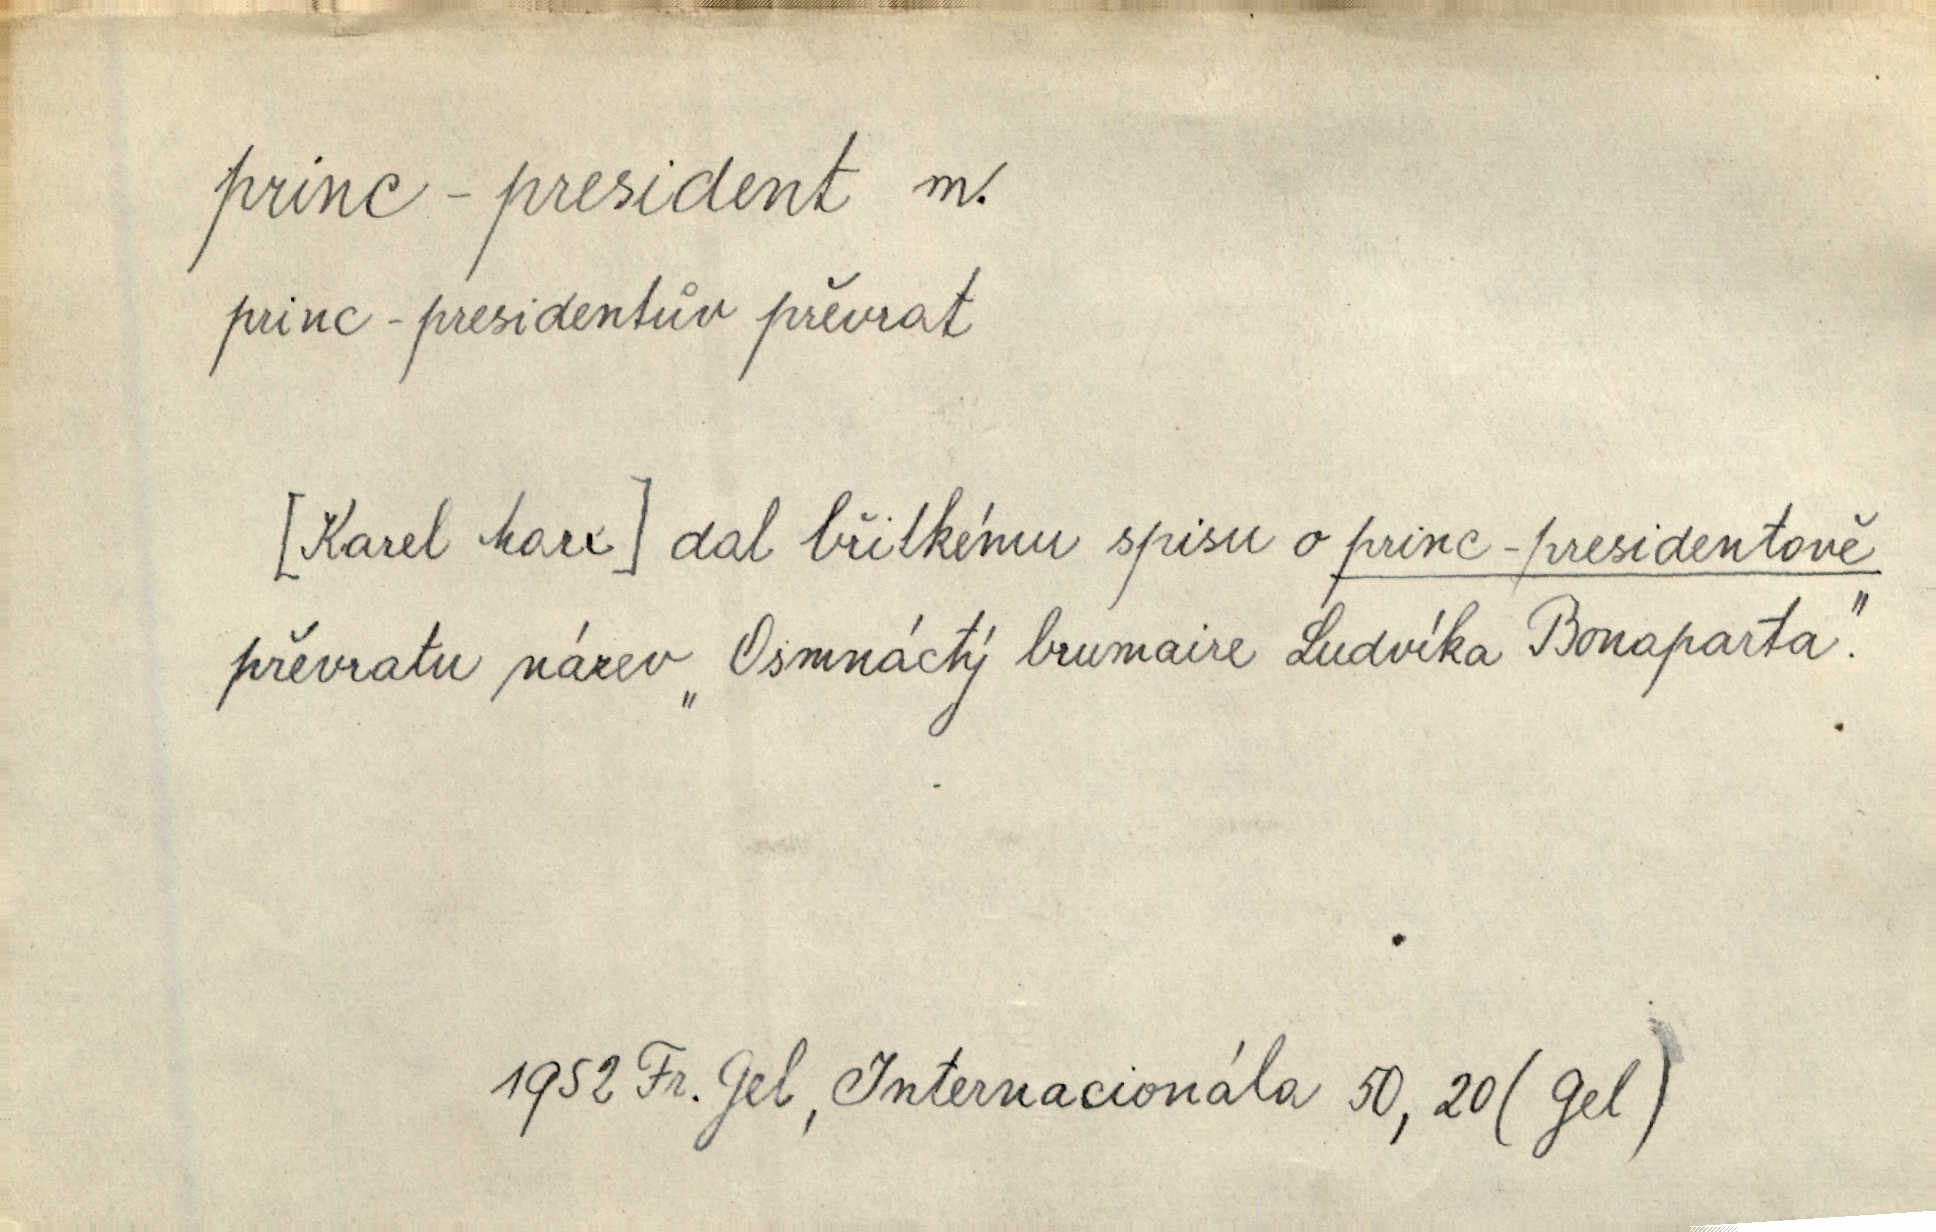 princ-president m.
princ-presidentův převrat
[Karel Marx] dal břitkému spisu o princ-presidentově
převratu název „Osmnáctý brumaire Ludvíka Bonaparta."
1952 Fr. Gel, Internacionála 50, 20 (Gel)